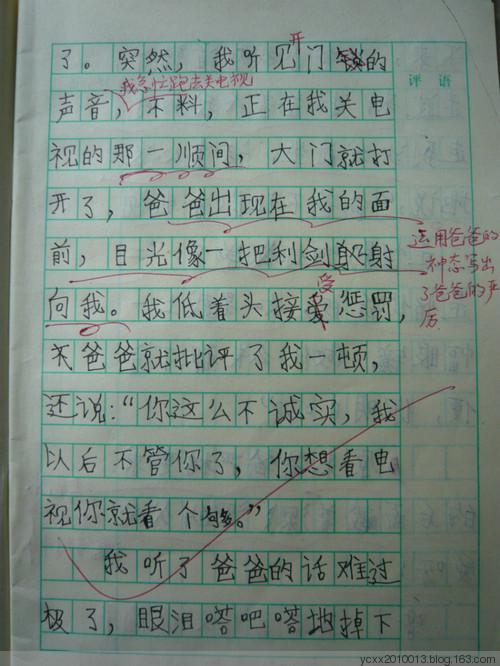 开
了。突然，我听见门锁的
评语
我急忙跑去关电视
声音，不料，正在我关电
视的那一顺间，大门就打
开了，爸爸出现在我的面
前，目光像一把利剑般射
运用爸爸的
神态写出
了爸爸的严
厉
受
向我。我低着头接爱惩罚，
爸爸就批评了我一顿，
还说：“你这么不诚实，我
以后不管你了，你想看电
视你就看个够。”
我听了爸爸的话难过
极了，眼泪嗒吧嗒地掉下
ycxx2010013.blog.163.com